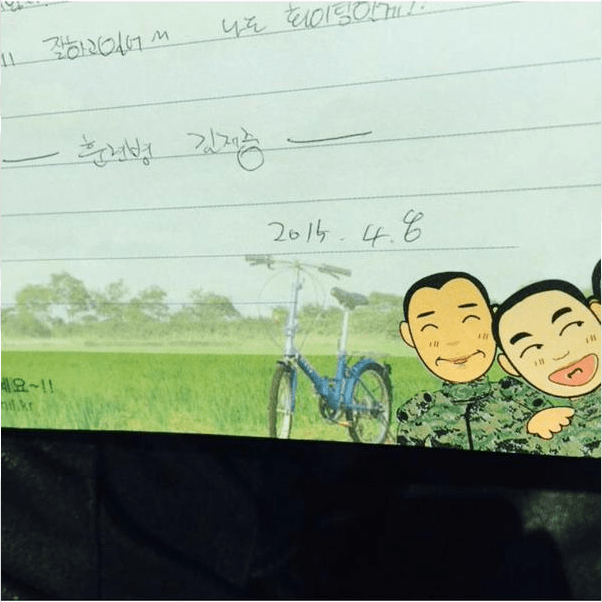 !! 잘하고있어~ 나도 화이팅할게!
— 훈련병 김재중 —
2015. 4. 8
세요~!!
mil.kr